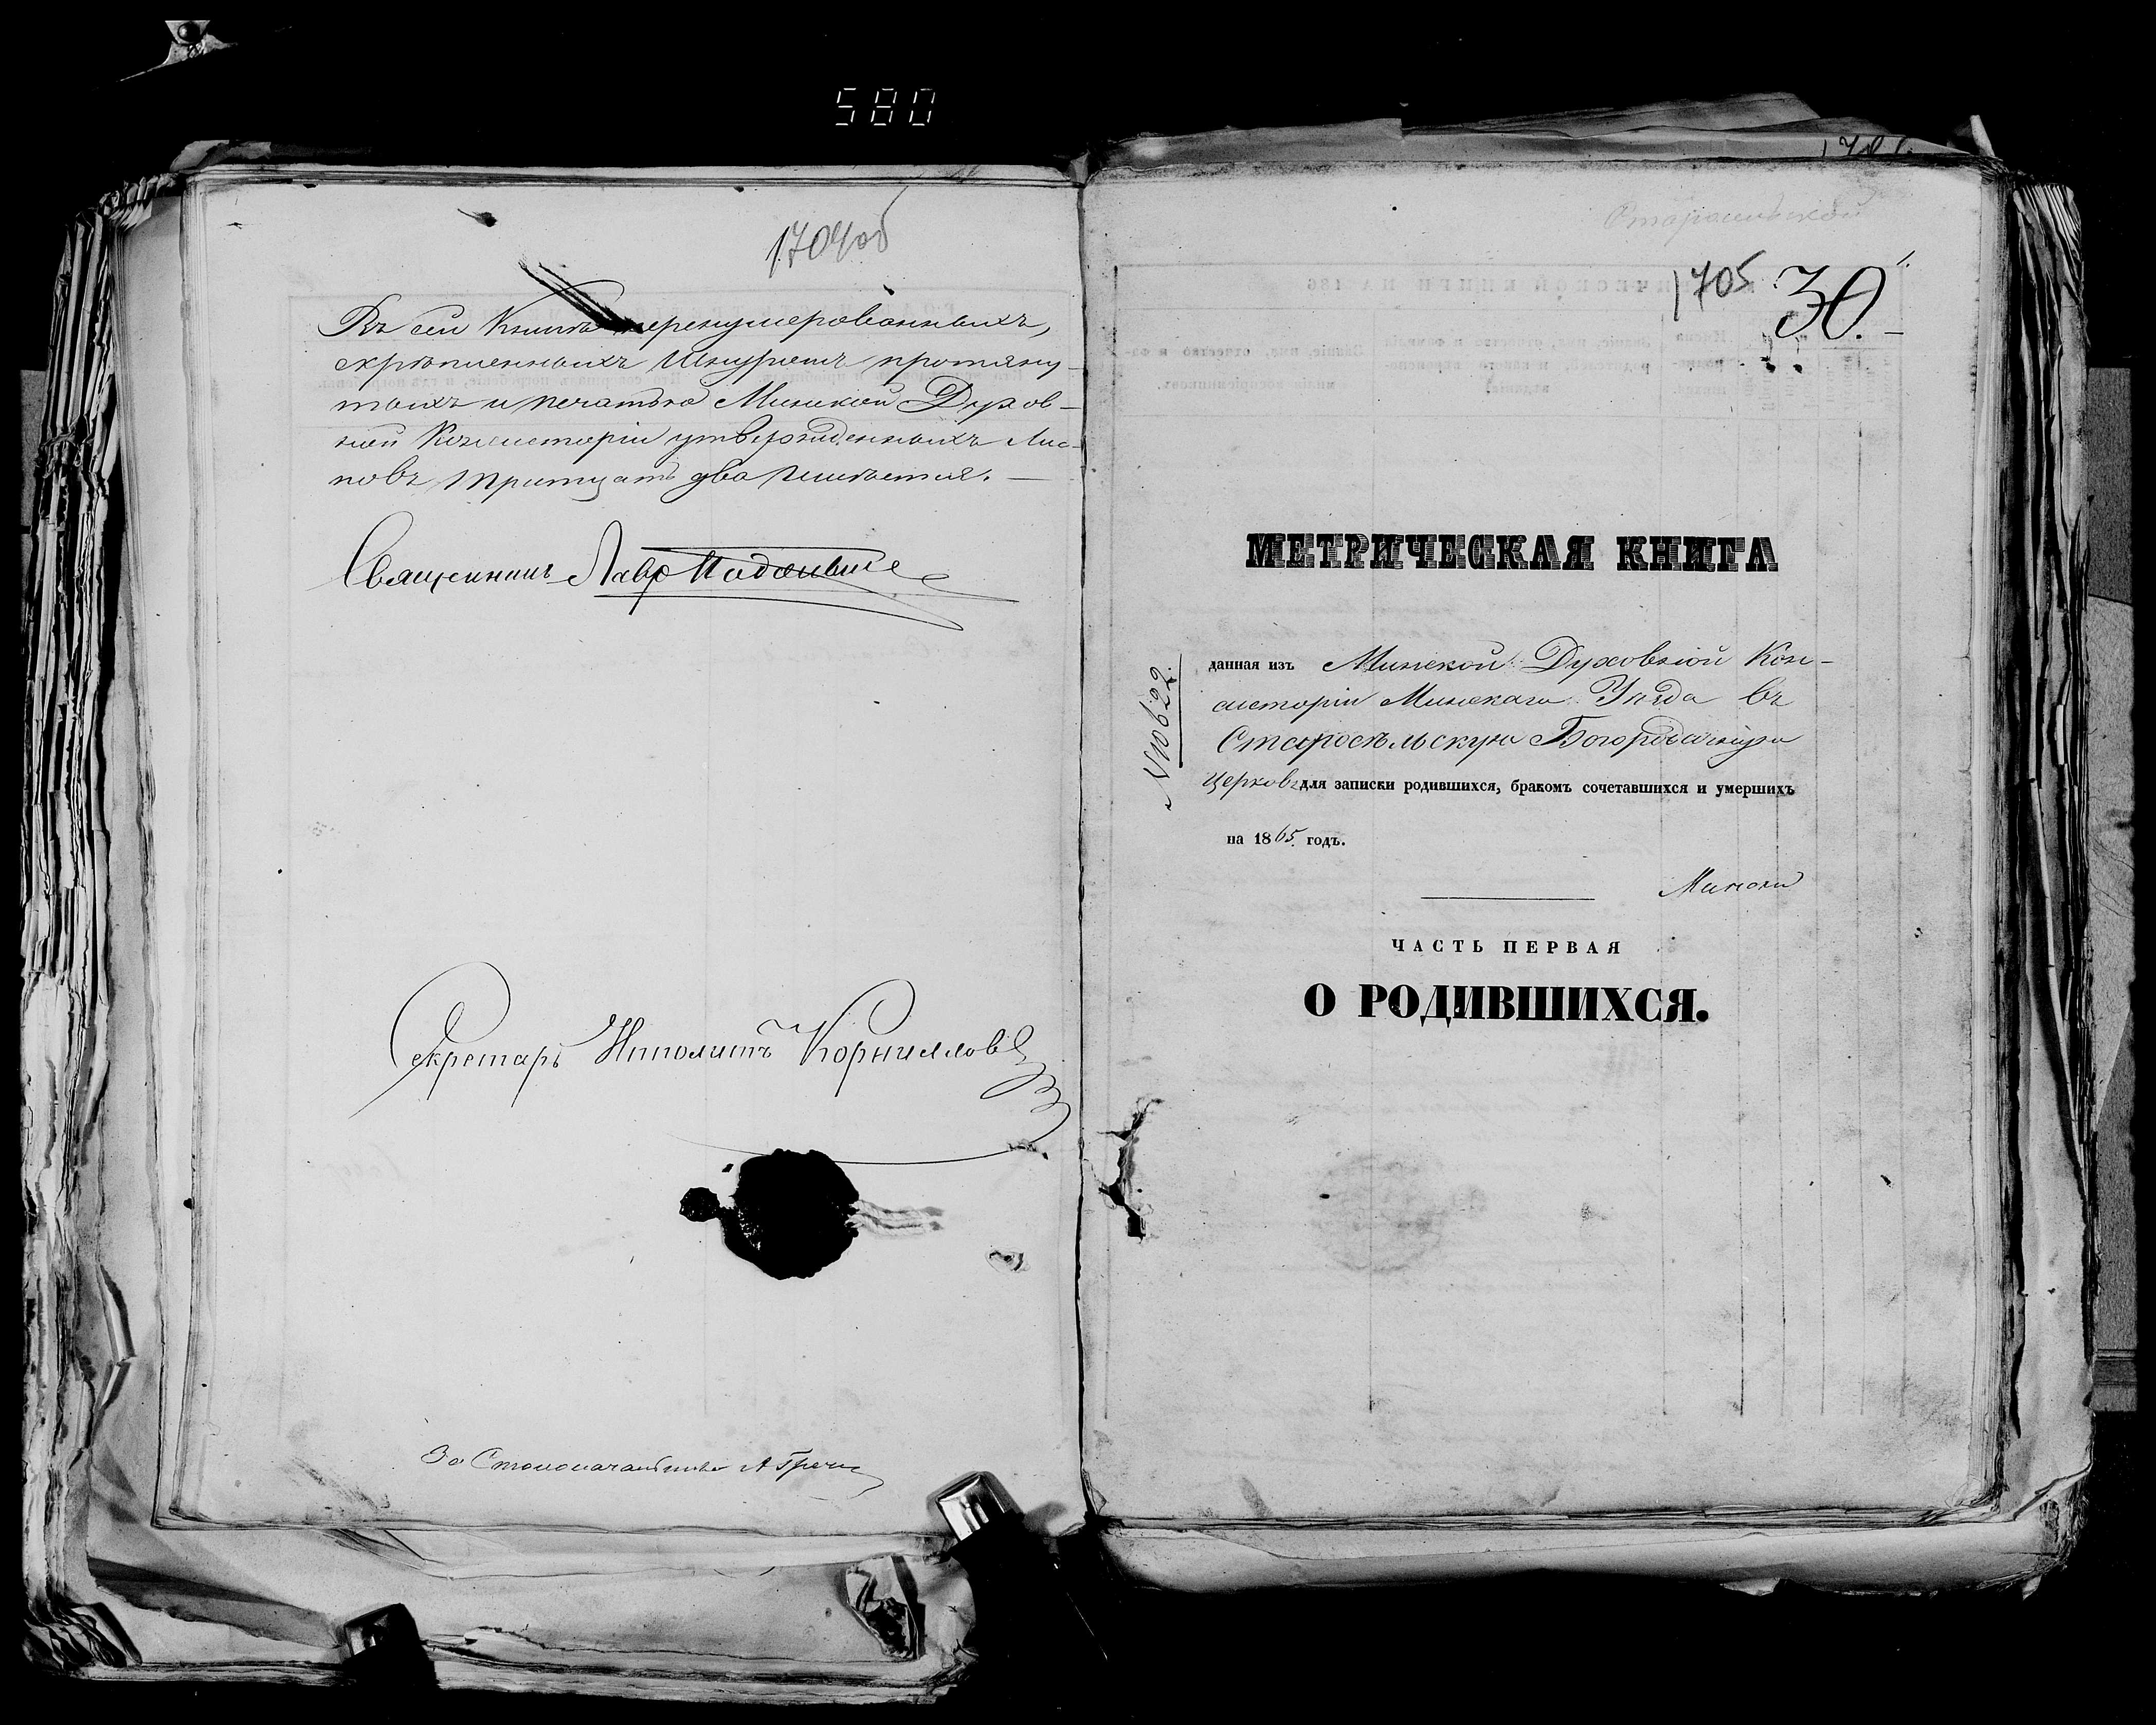 580
1704 об
Въ сей Книгѣ перенумерованныхъ,
скрѣпленныхъ шнуромъ протяну-
тыхъ и печатью Минской Духов-
ной Консисторіи утвержденныхъ лис-
товъ тритцать два имѣется.
Священникъ Лавр
Секретарь Ипполитъ Корниллов
За Столоначальника А
Старосельской
1705
30.
МЕТРИЧЕСКАЯ КНИГА
№ 10622.
данная изъ Минской Духовной Кон-
систоріи Минскаго Уѣзда въ
Старосѣльскую Богородичную
церковь для записки родившихся, бракомъ сочетавшихся и умершихъ
на 1865 годъ.
ЧАСТЬ ПЕРВАЯ
О РОДИВШИХСЯ.